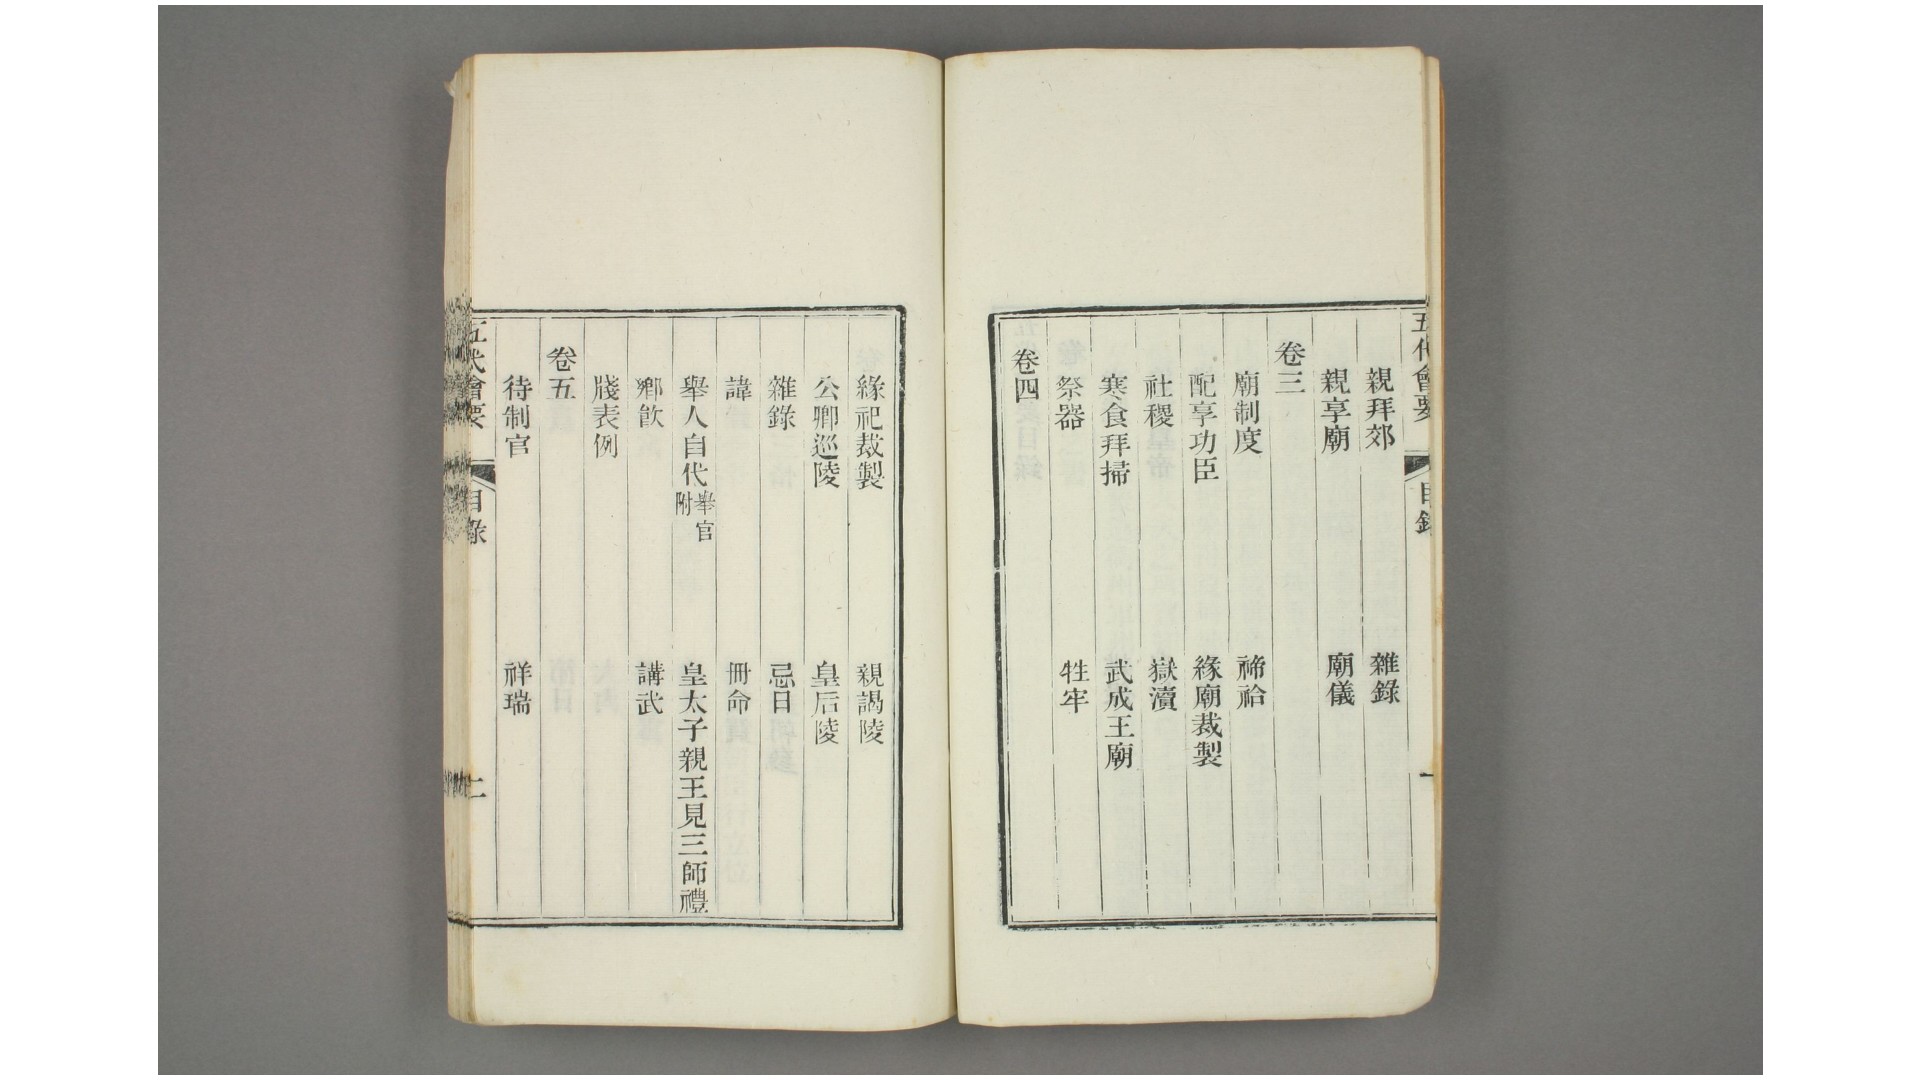 五代會要 目錄 一
親拜郊 雜錄
親享廟 廟儀
卷三
廟制度 禘祫
配享功臣 緣廟裁製
社稷 嶽瀆
寒食拜掃 武成王廟
祭器 牲牢
卷四
緣祀裁製 親謁陵
公卿巡陵 皇后陵
雜錄 忌日
諱 冊命
舉人自代舉官附 皇太子親王見三師禮
鄉飮 講武
牋表例
卷五
待制官 祥瑞
五代會要 目錄 二